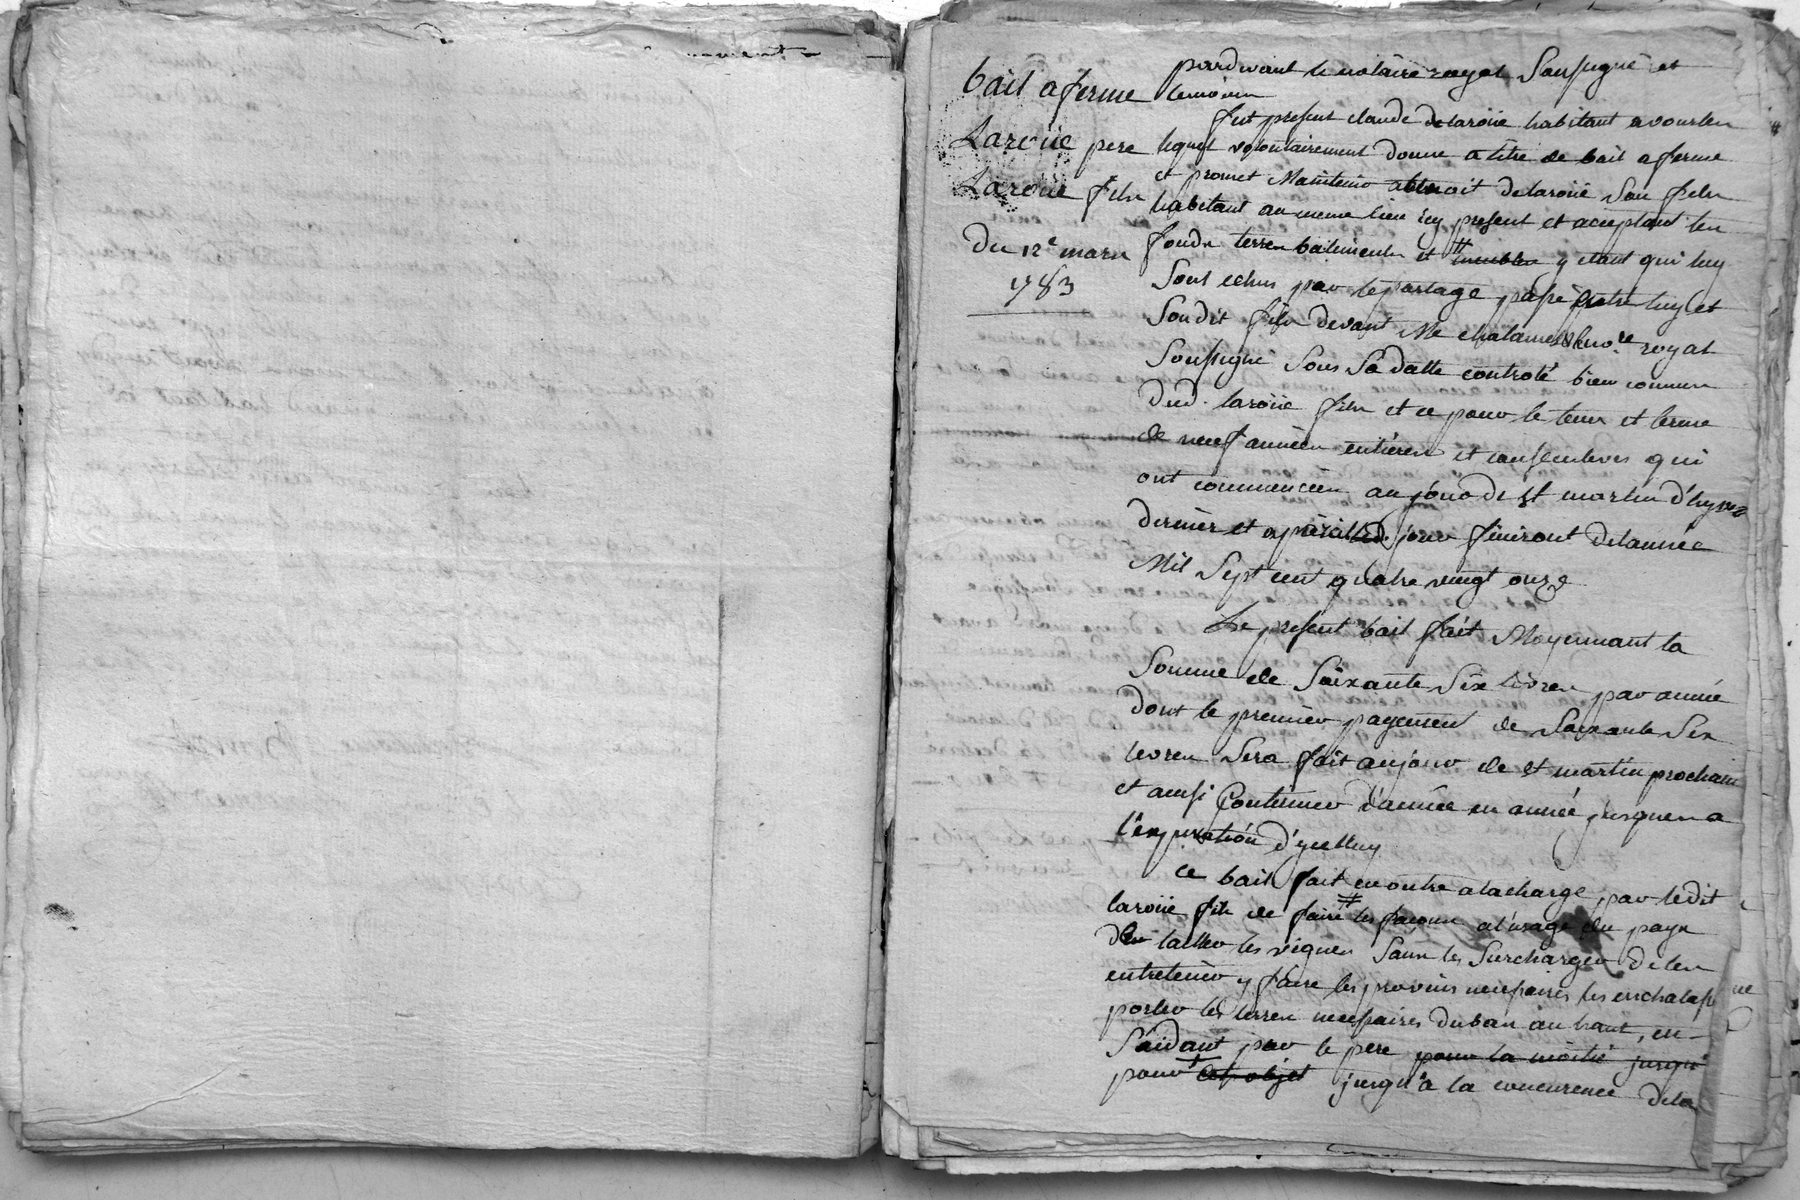 bail a ferme
Laroüe pere
Laroüe fils
Du 12e mars
1783
pardevant le notaire royal Soussigné et
temoins
fut present claude delaroüe habitant a
lequel volontairement donne a titre de bail a ferme
et promet Maintenir a benoit delaroüe Son fils
habitant au meme lieu icy present et acceptant les
fonds terres batiments et # meubles y etant qui luy
Sont echus par le partage passé entre luy et
Sondit fils devant Me no.re royal
Soussigné Sous Sa datte controlé bien connus
dud. laroüe fils et ce pour le tems et terme
de neuf années entieres et consecutives qui
ont commencées au jour de st martin d'hyver
dernier et a pareil jour finiront de l'année
Mil Sept cent quatre vingt onze
Le present bail fait Moyennant la
Somme de Soixante Six livres par année
dont le premier payement de Soixante Six
livres Sera fait au jour de st martin prochain
et ainsi Continuer d'année en année jusques a
l'expiration d'ycelluy
Ce bail fait en outre a la charge par ledit
laroüe fils de faire # les façons a l'usage du pays
de tailler les vignes Sans les Surcharger de les
entretenir y faire les provins necessaires les
porter les terres necessaires du bas au haut, en
S'aidant par le pere pour la moitié jusqu'
pour cet objet jusqu'à la concurence de la